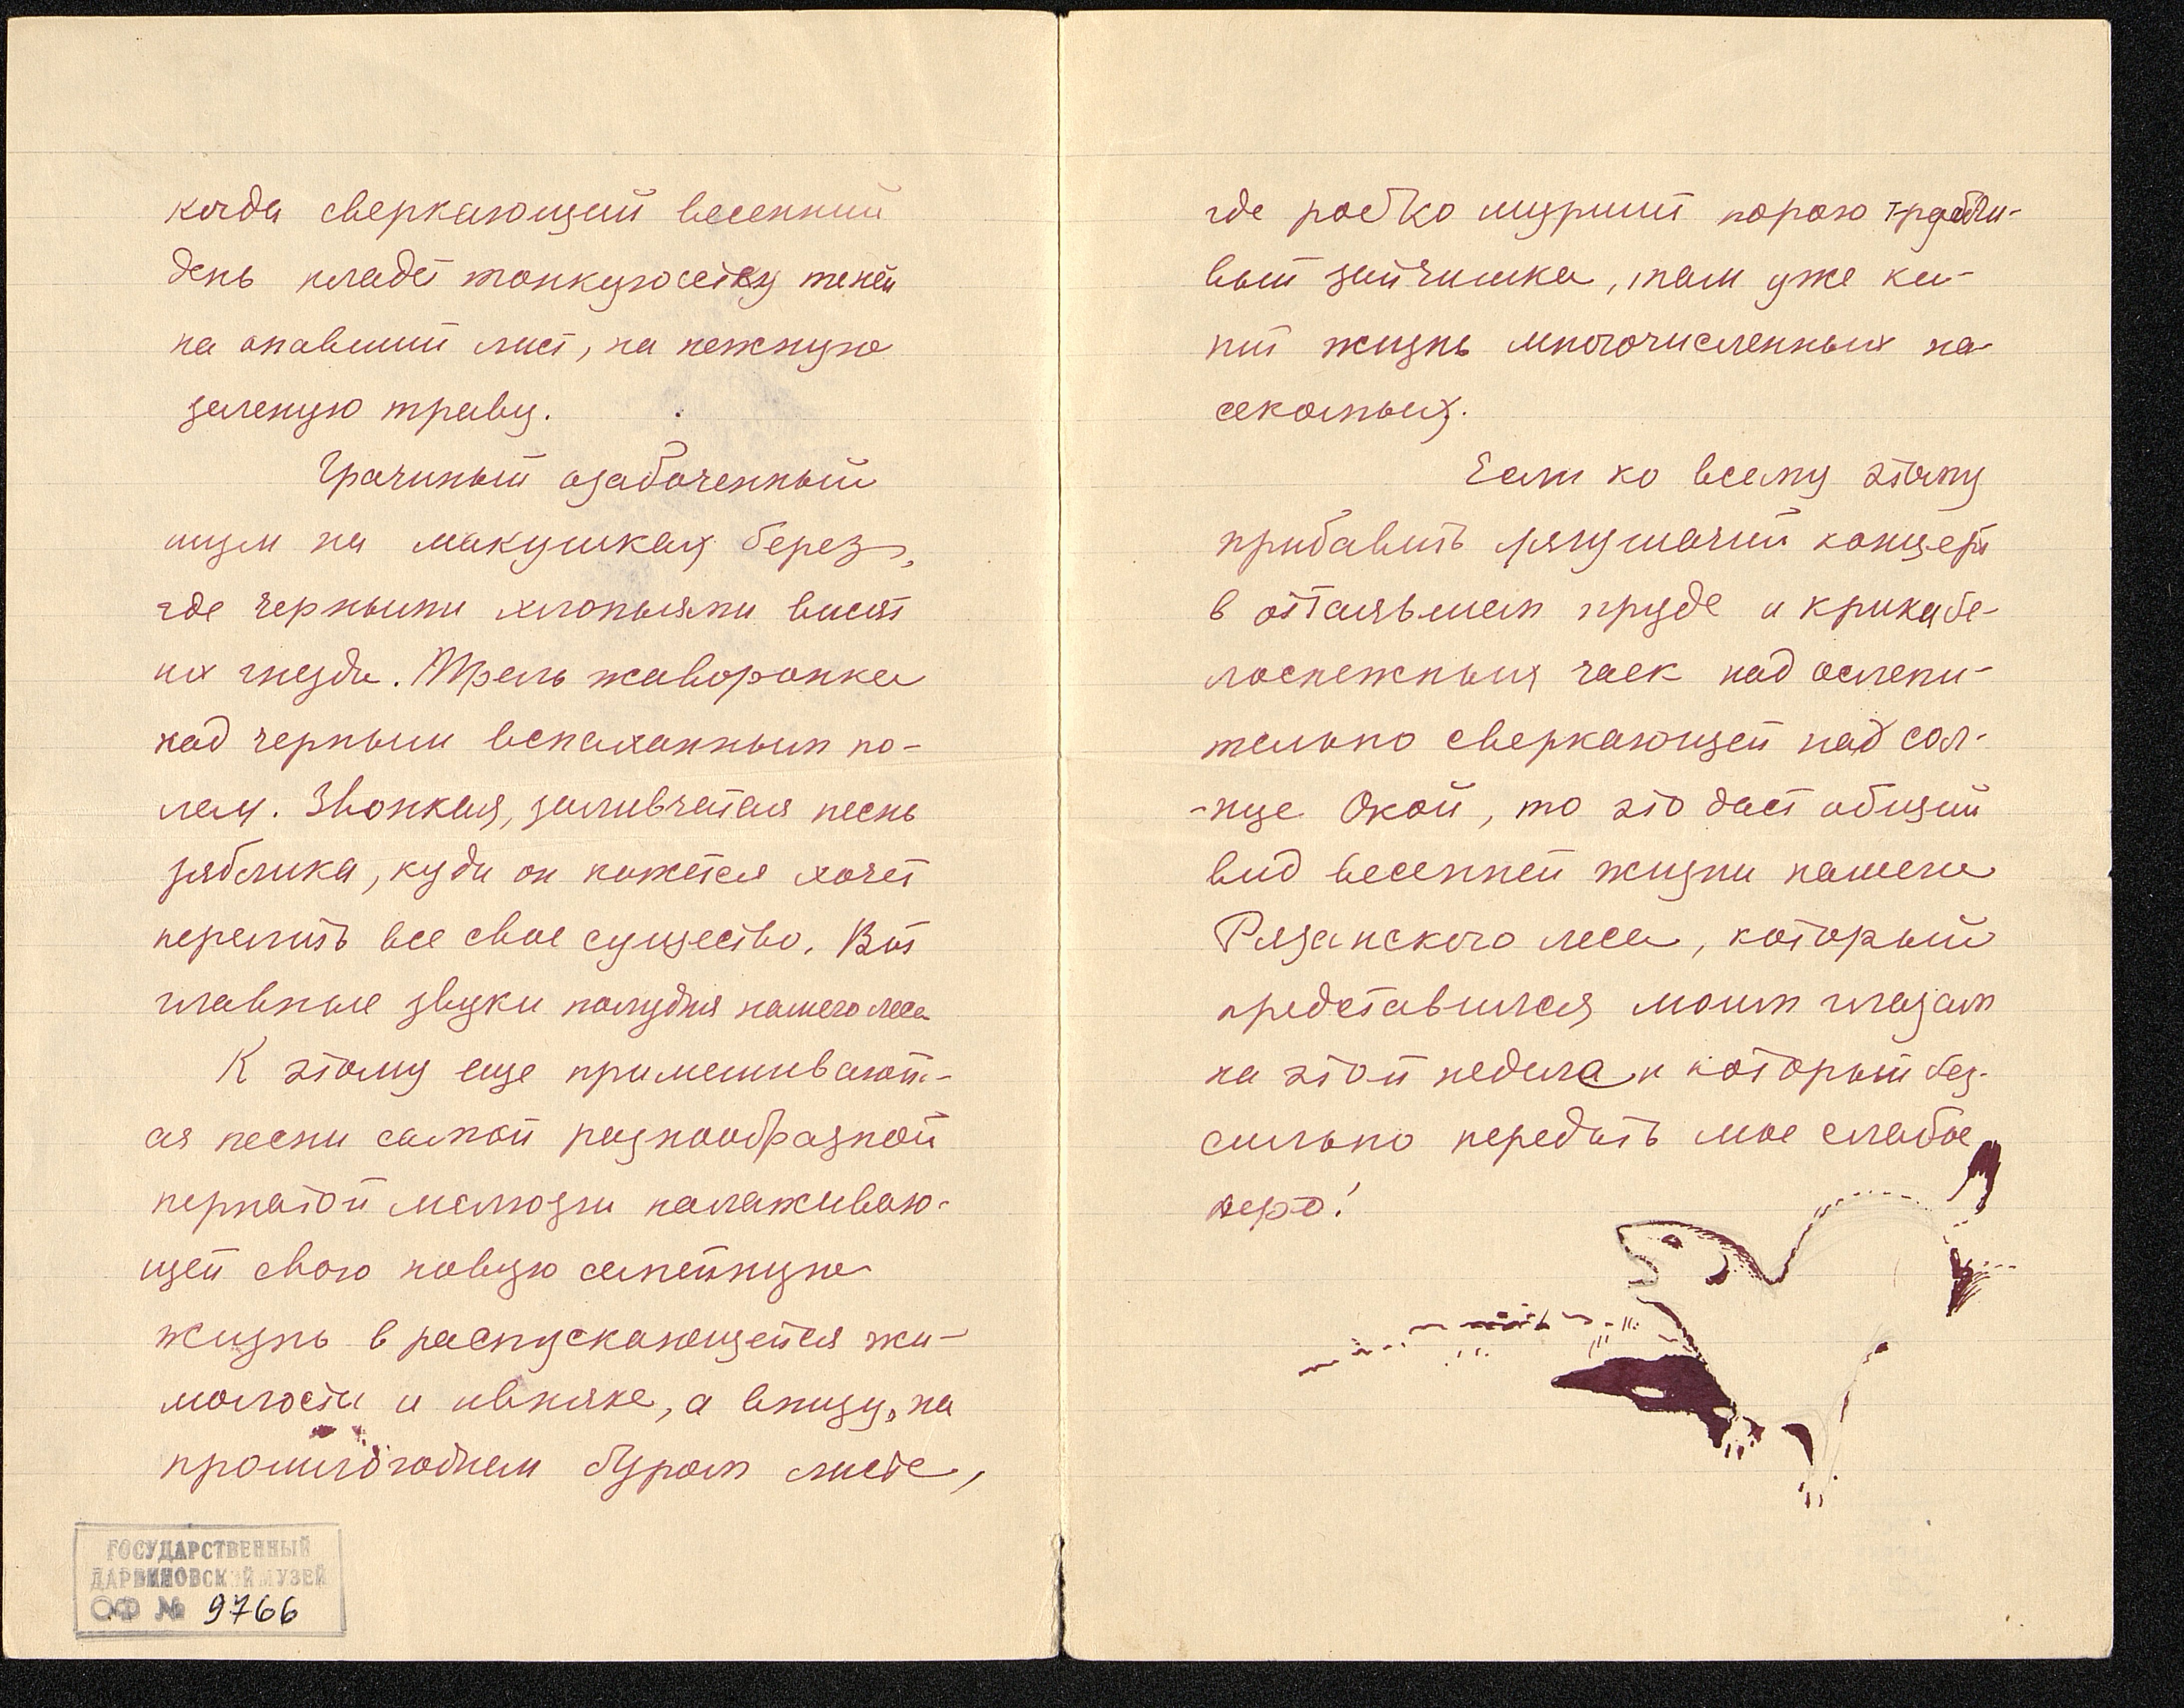 когда сверкающий весенний
день кладет тонкую сетку теней
на опавший лист, на нежную
зеленую траву.
Грачиный озабоченный
шум на макушках берез,
где черными хлопьями висят
их гнезда. Трель жаворонка
над черным вспаханным по-
лем. Звонкая, заливчатая песнь
зяблика, куда он кажется хочет
перелить все свое существо. Вот
главные звуки полудня нашего леса
К этому еще примешивают-
ся песни самой разнообразной
пернатой мелюзги налаживаю-
щей свою новую семейную
жизнь в распускающейся жи-
молости и ивняке, а внизу, на
прошлогоднем буром листе,
ГОСУДАРСТВЕННЫЙ
ДАРВИНОВСКИЙ МУЗЕЙ
ОФ № 9766
где робко шуршит порою трусли-
вый зайчишка, там уже ки-
пит жизнь многочисленных на-
секомых.
Если ко всему этому
прибавить лягушачий концерт
в оттаявшем пруде и крики бе-
лоснежных чаек над ослепи-
тельно сверкающей над сол-
-нце Окой, то это даст общий
вид весенней жизни нашего
Рязанского леса, который
представился моим глазам
на этой неделе и который без-
сильно передать мое слабое
перо!